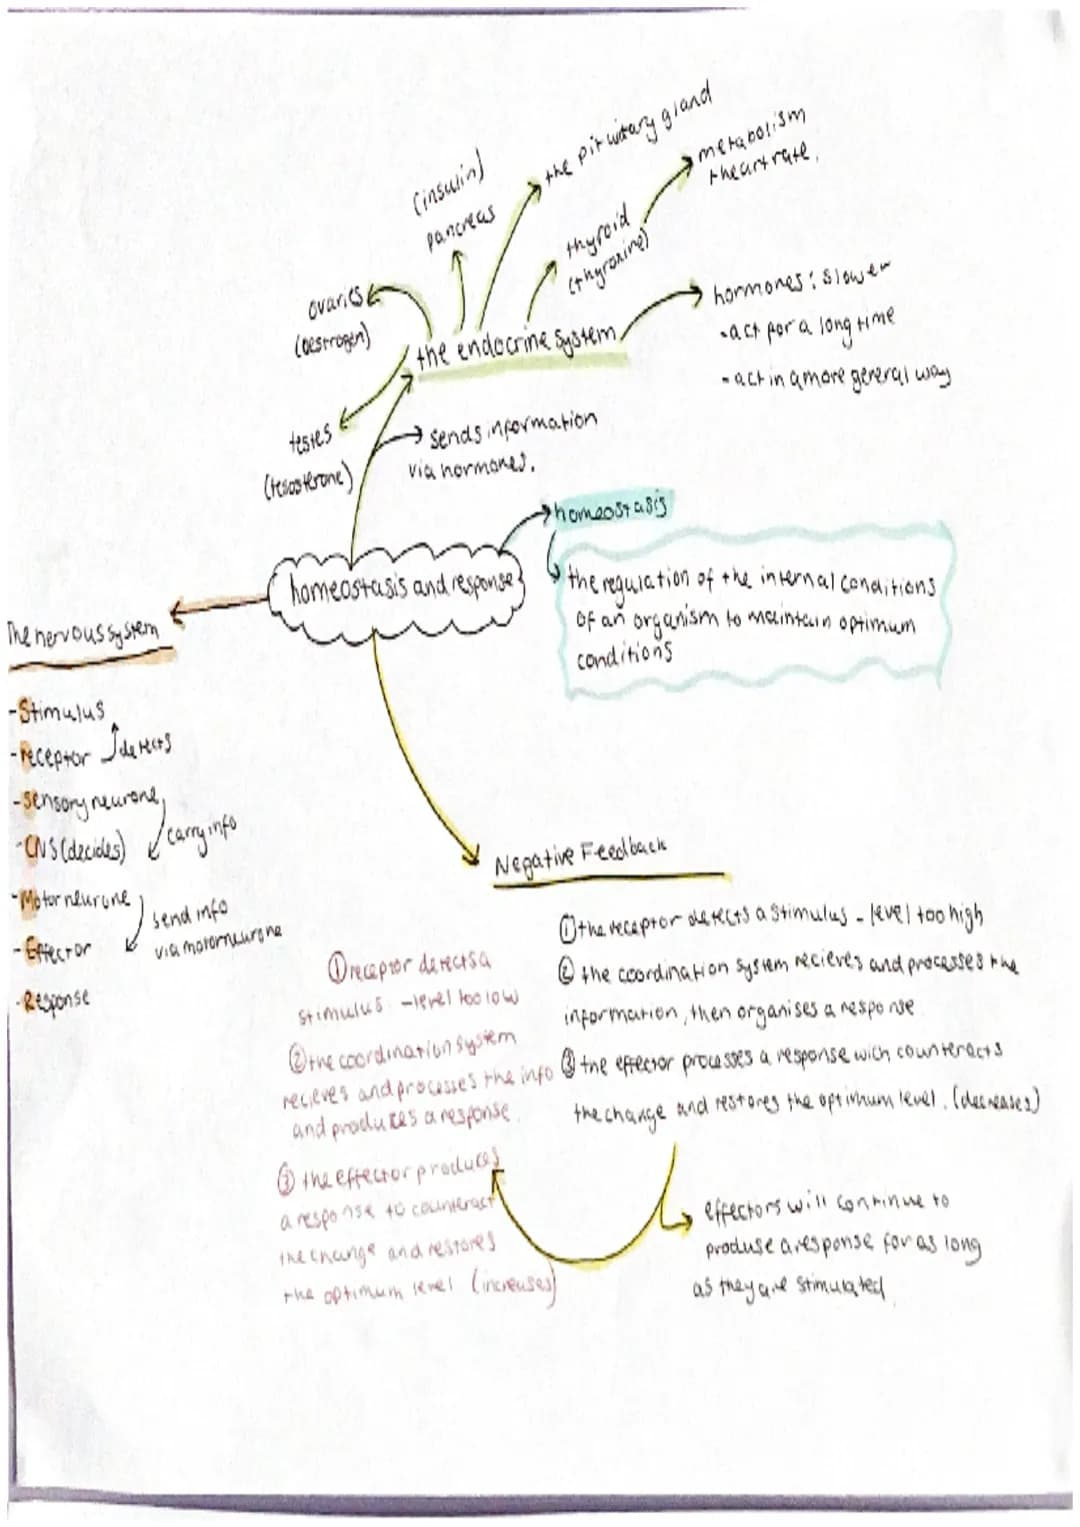 (insulin)
pancreas
the pituitary gland
metabolism
+heart rate.
thyroid
(thyroxine)
ovaries
(oestrogen)
hormones: slower
-act for a long time
-act in a more general way
the endocrine system
testes
(testosterone)
sends information
via hormones.
homeostasis
the regulation of the internal conditions
of an organism to maintain optimum
conditions
homeostasis and response
The nervous system
-Stimulus
-receptor
detects
-Sensory neurone
-CNS (decides)
carry info
-Motor neurone
send info
via motorneurone
-Effector
-Response
Negative Feedback
①the receptor detects a stimulus - level too high
② the coordination system recieves and processes the
information, then organises a response
③ the effector processes a response wich counteracts
the change and restores the optimum level. (decreases)
①receptor detects a
stimulus -level too low
②the coordination system
recieves and processes the info
and produces a response.
③ the effector produces
a response to counteract
the change and restores
the optimum level (increases)
effectors will continue to
produse a response for as long
as they are stimulated